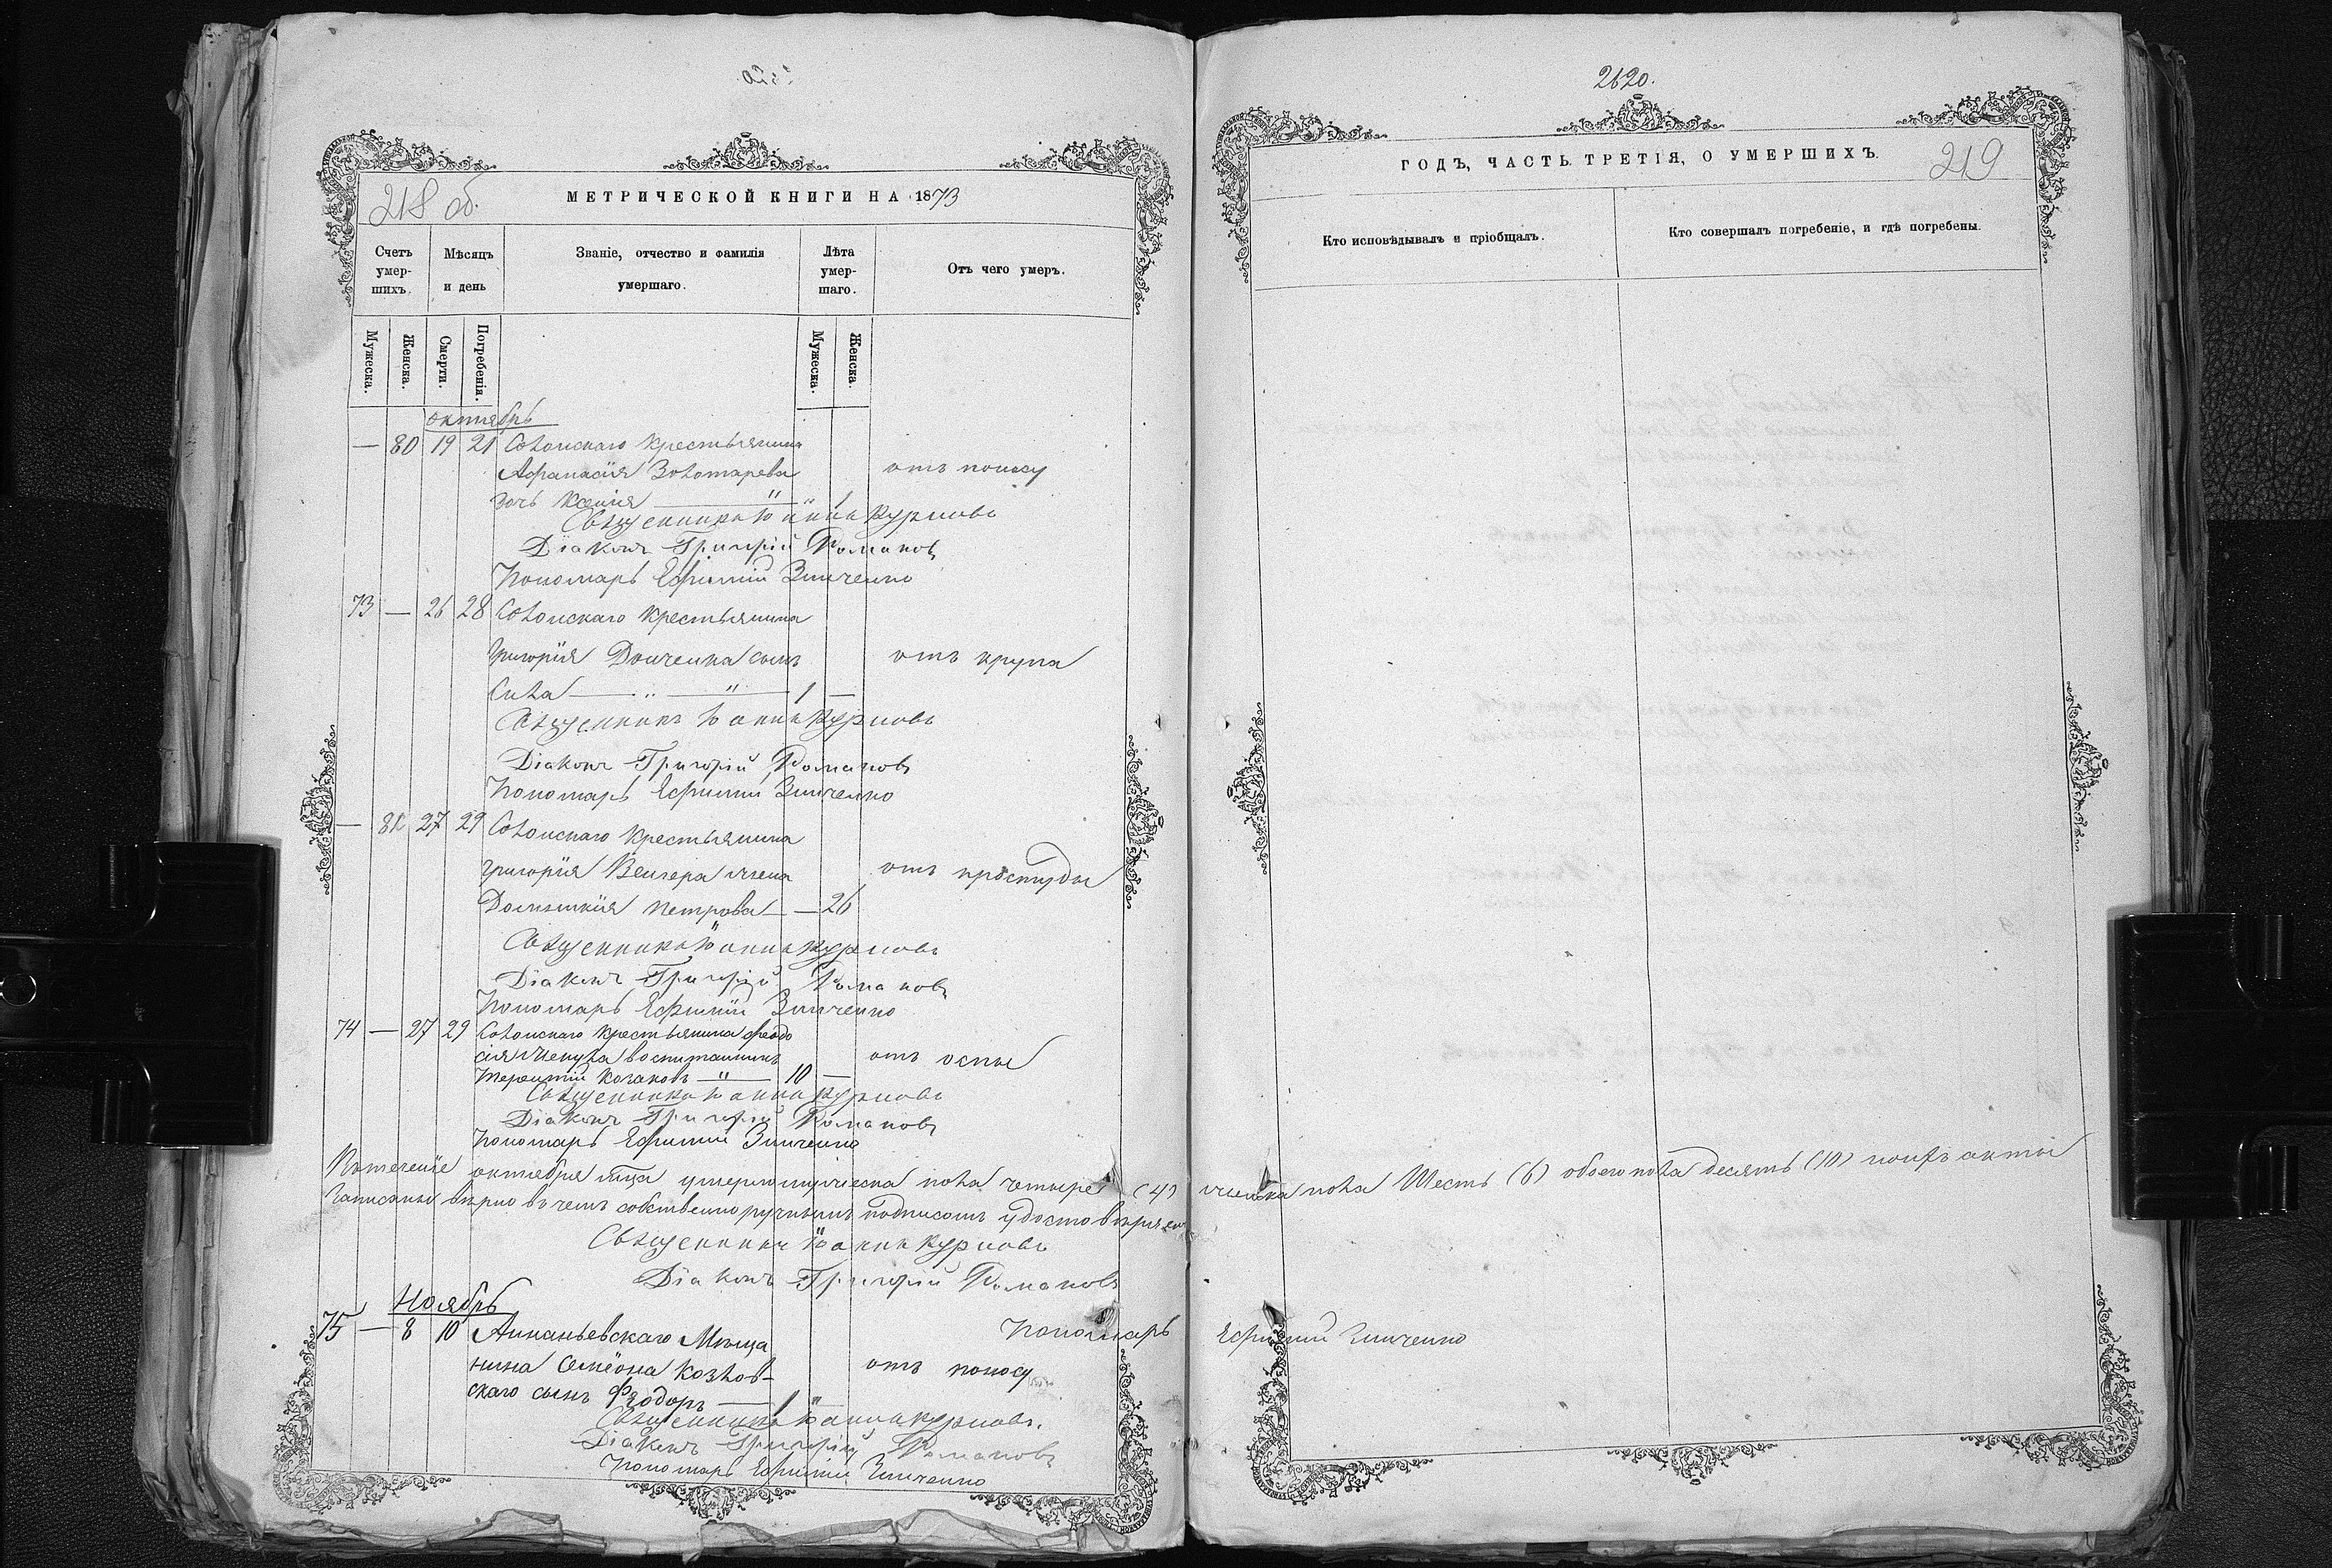 218 об.
МЕТРИЧЕСКОЙ КНИГИ НА 1873
Счетъ умер-шихъ.
Мѣсяцъ и день
Званіе, отчество и фамилія умершаго.
Лѣта умер-шаго.
Отъ чего умеръ.
Мужеска.
Женска.
Смерти.
Погребенія.
Мужеска.
Женска.
октябрь
— 80 19 21 Солонскаго крестьянина
Афанасія Золотарева отъ поносу
дочь Ксенія — " " 1
Священникъ Іоаннъ Курловъ
Діаконъ Григорій Романовъ
Пономарь Ефимій Зинченко
73 — 26 28 Солонскаго крестьянина
Григорія Донченка сынъ отъ крупа
Сила — " — " — 1 —
Священникъ Іоаннъ Курловъ
Діаконъ Григорій Романовъ
Пономарь Ефимій Зинченко
— 81 27 29 Солонскаго крестьянина
Григорія Венгера жена отъ простуды
Домникія Петрова — — 26
Священникъ Іоаннъ Курловъ
Діаконъ Григорій Романовъ
Пономарь Ефимій Зинченко
74 — 27 29 Солонскаго крестьянина Феодо
сія воспитанникъ отъ оспы
Терентій Козаковъ — " — 10 —
Священникъ Іоаннъ Курловъ
Діаконъ Григорій Романовъ
Пономарь Ефимій Зинченко
Втеченіе октября мца умерло мужеска пола четыре (4) женска пола Шесть (6) обоего пола десять (10) акты
записаны вѣрно въ чемъ собственноручнымъ подписомъ удостовѣряемъ
Священникъ Іоаннъ Курловъ
Діаконъ Григорій Романовъ
Пономарь Ефимій Зинченко
Ноябрь
75 — 8 10 Ананьевскаго Мѣща
нина Семёона Козлов-
скаго сынъ Ѳеодоръ — 1 " отъ поносу
Священникъ Іоаннъ Курловъ.
Діаконъ Григорій Романовъ
Пономарь Ефимій Зинченко
2620.
ГОДЪ, ЧАСТЬ ТРЕТІЯ, О УМЕРШИХЪ.
219
Кто исповѣдывалъ и пріобщалъ.
Кто совершалъ погребеніе, и гдѣ погребены.